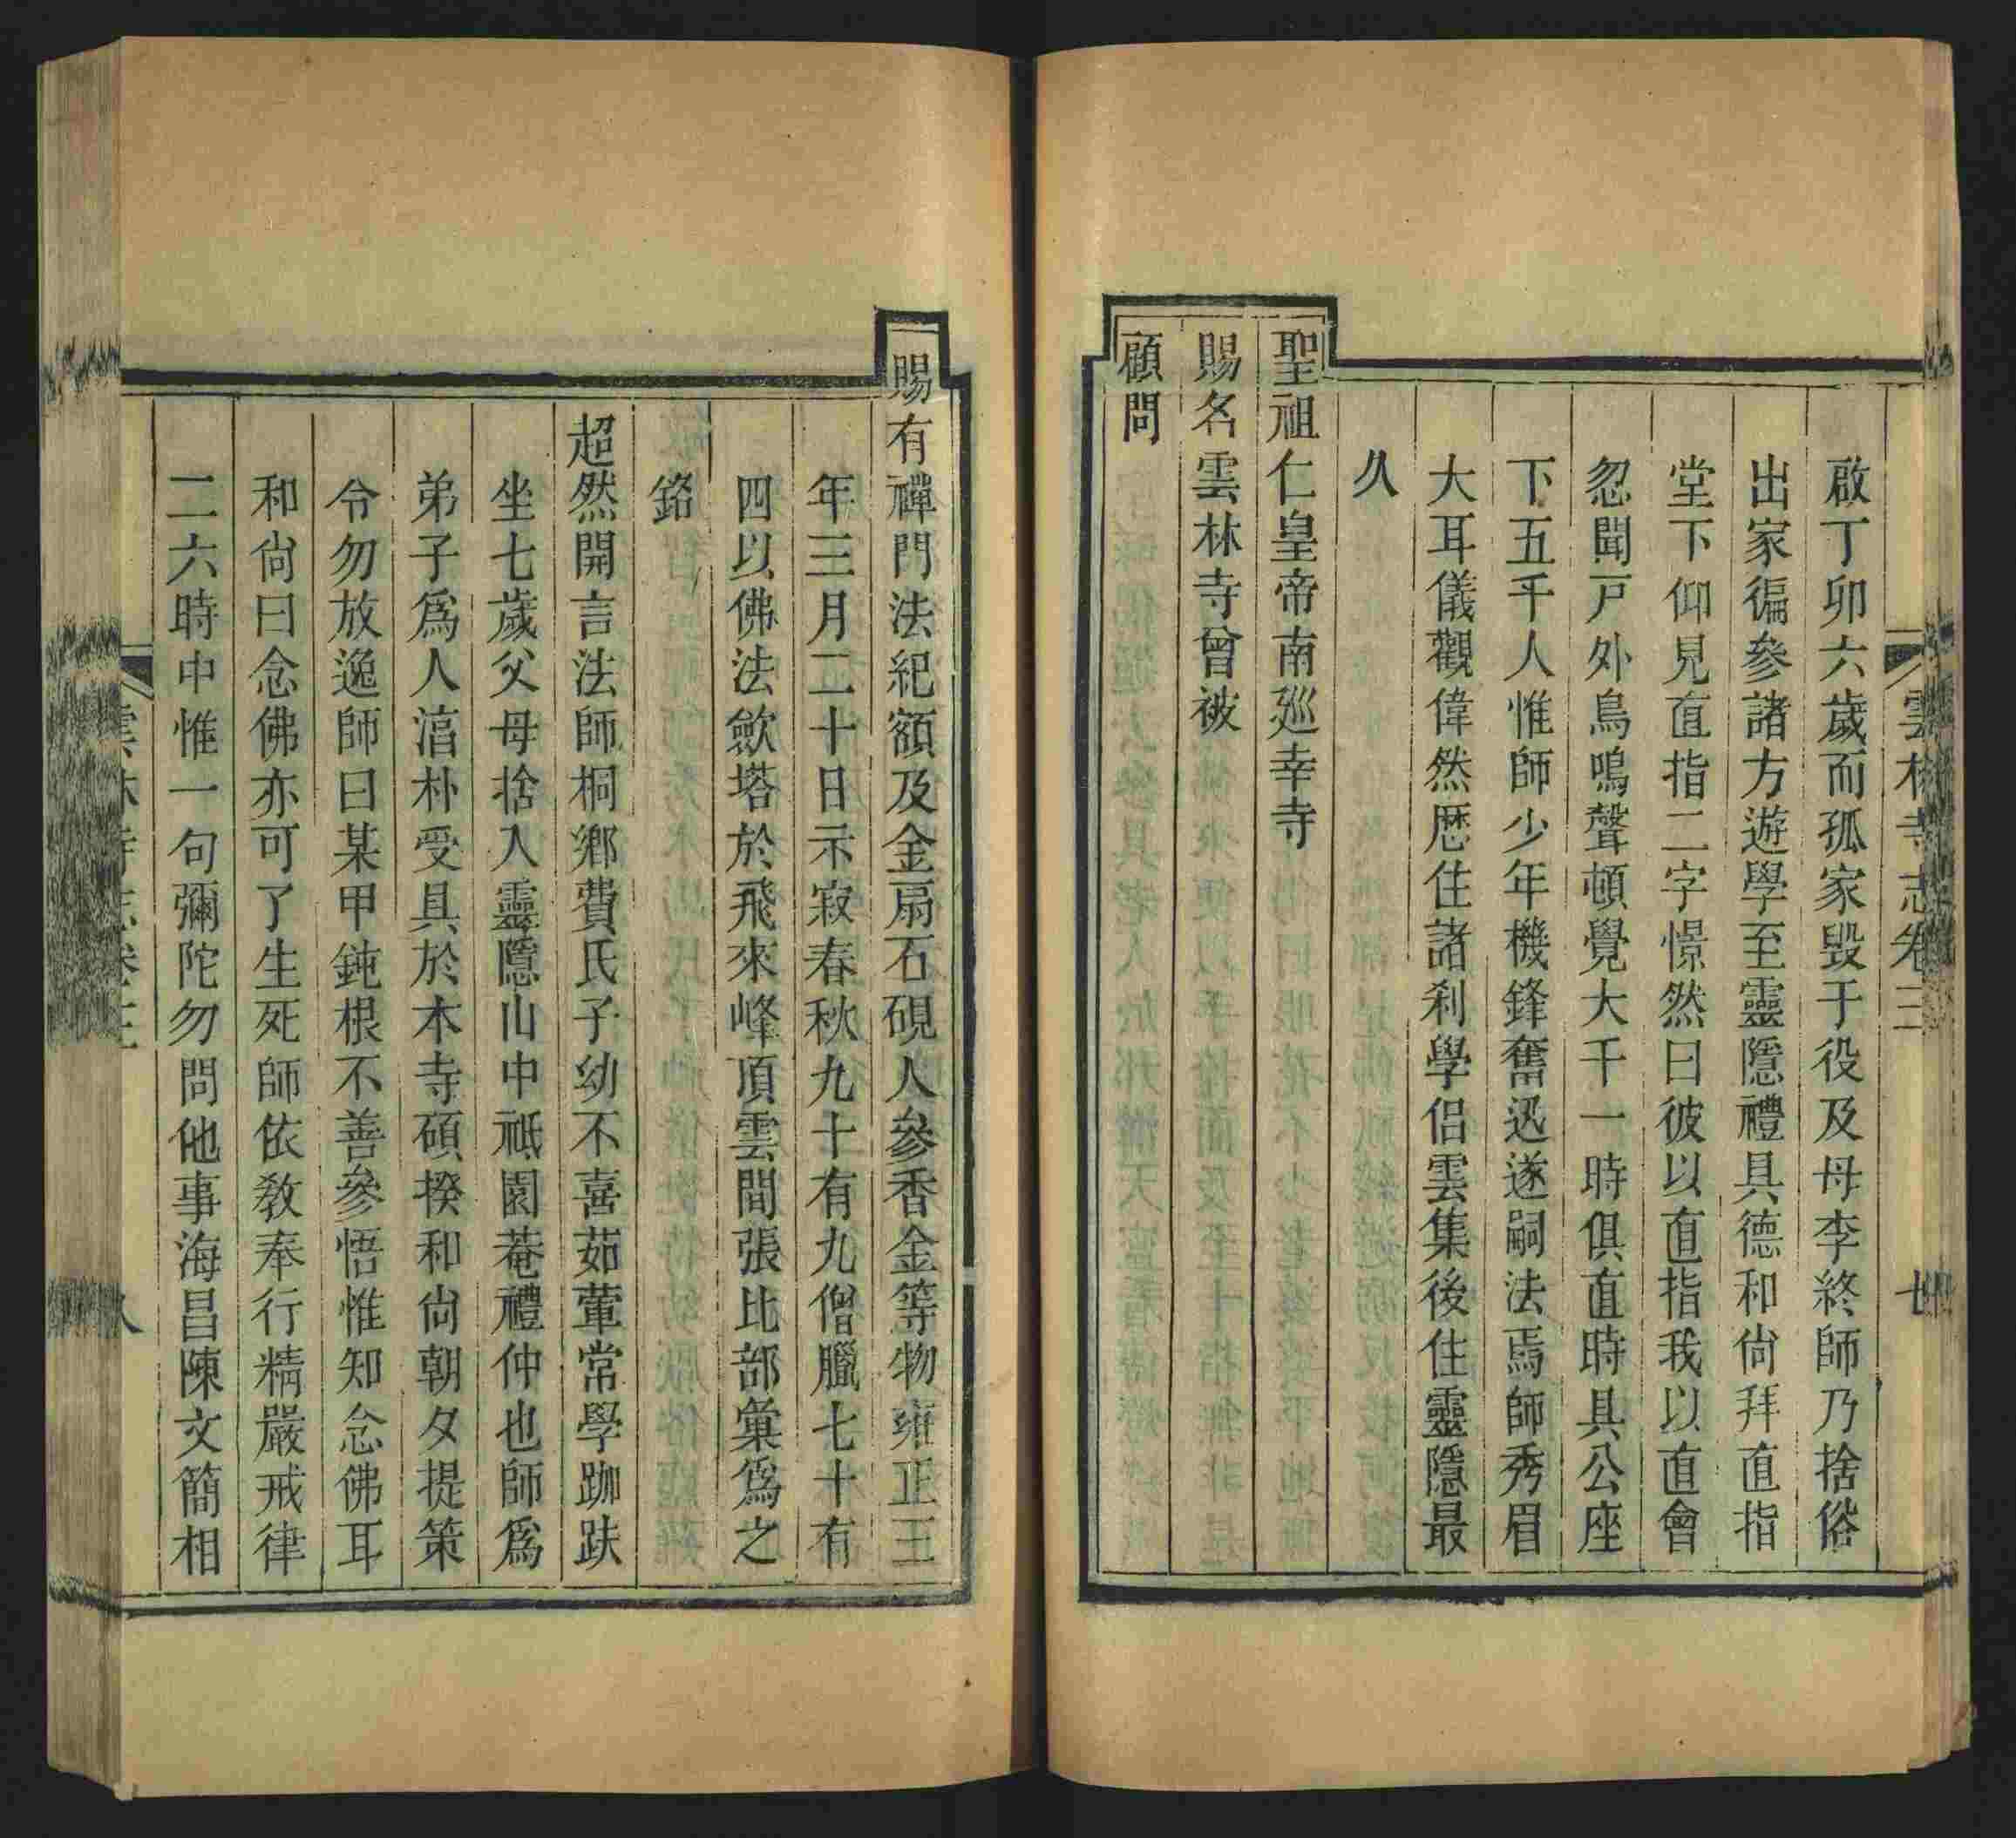 雲林寺志卷三
七
啟丁卯六歲而孤家毀于役及母李終師乃捨俗
出家徧參諸方遊學至靈隱禮具德和尙拜直指
堂下仰見直指二字憬然曰彼以直指我以直會
忽聞戸外鳥鳴聲頓覺大千一時俱直時具公座
下五千人惟師少年機鋒奮迅遂嗣法焉師秀眉
大耳儀觀偉然歴住諸刹學侶雲集後住靈隱最
久
聖祖仁皇帝南廵幸寺
賜名雲林寺曾被
顧問
賜有禪門法紀額及金扇石硯人參香金等物雍正三
年三月二十日示寂春秋九十有九僧臘七十有
四以佛法歛塔於飛來峰頂雲間張比部彙爲之
銘
超然開言法師桐鄉費氏子幼不喜茹葷常學跏趺
坐七歲父母捨入靈隱山中祇園菴禮仲也師爲
弟子爲人湻朴受具於本寺碩揆和尙朝夕提策
令勿放逸師曰某甲鈍根不善參悟惟知念佛耳
和尙曰念佛亦可了生死師依敎奉行精嚴戒律
二六時中惟一句彌陀勿問他事海昌陳文簡相
雲林寺志卷三
八